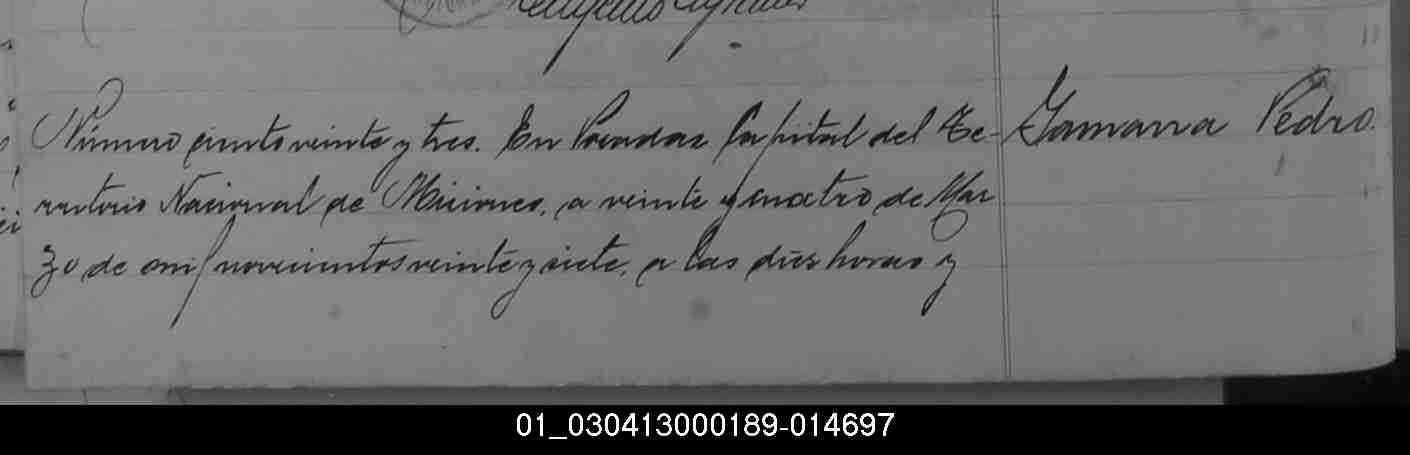 Número ciento veinte y tres. En Posadas Capital del Te-
rritorio Nacional de Misiones, a veinte y cuatro de Mar
zo de mil novecientos veinte y siete, a las diez horas y
Gamarra Pedro.
01_030413000189-014697